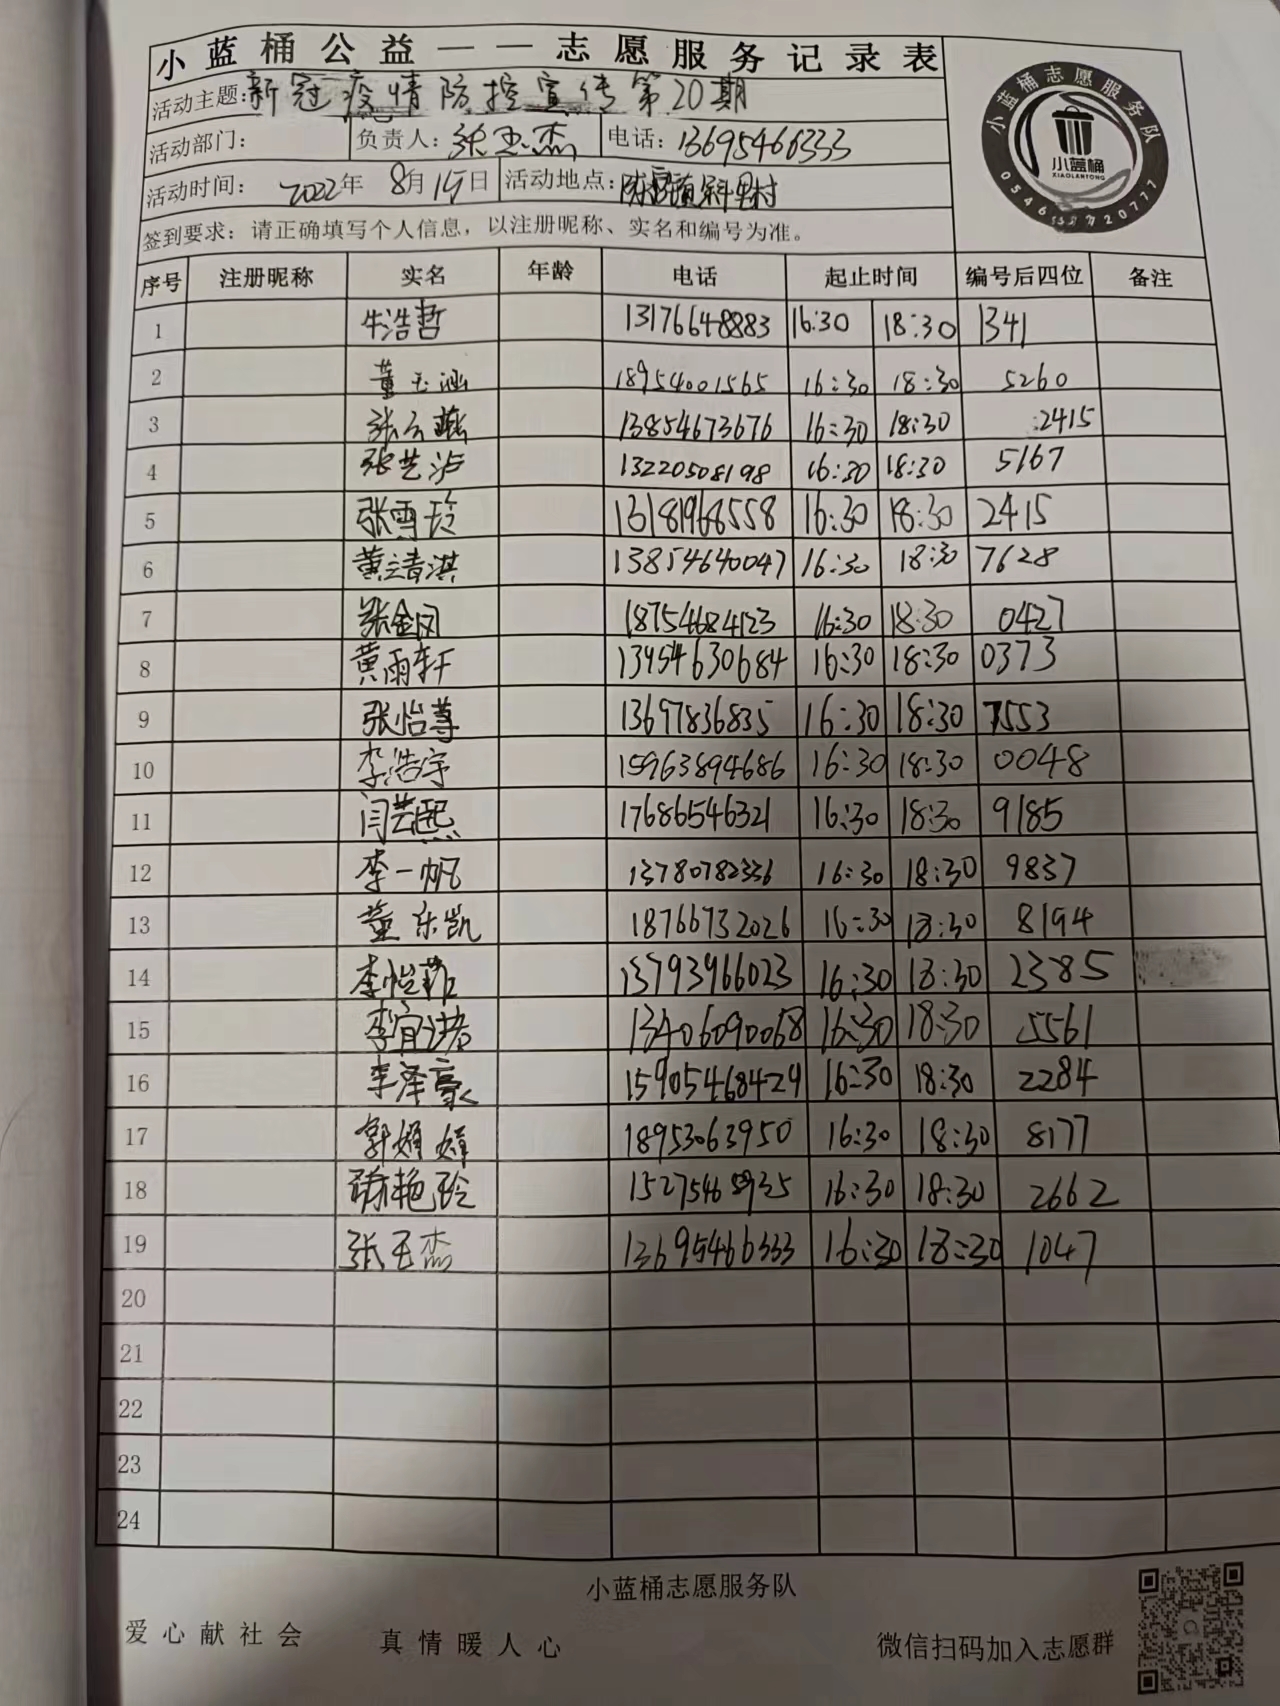 小蓝桶公益——志愿服务记录表
活动主题:新冠疫情防控宣传第20期
活动部门: 负责人:张玉杰 电话:13695466333
活动时间: 2022年 8月 15日 活动地点:
签到要求:请正确填写个人信息,以注册昵称、实名和编号为准。
小蓝桶志愿服务队
小蓝桶
XIAOLANTONG
序号 注册昵称 实名 年龄 电话 起止时间 编号后四位 备注
1 牛浩哲 13176648883 16:30 18:30 1341
2 董玉涵 18954001565 16:30 18:30 5260
3 张云 13854673676 16:30 18:30 2415
4 张艺泸 13220508198 16:30 18:30 5167
5 张雪玲 13181968558 16:30 18:30 2415
6 黄靖淇 13854640047 16:30 18:30 7628
7 张金凤 18754684123 16:30 18:30 0427
8 黄雨轩 13954630684 16:30 18:30 0373
9 张怡尊 13697836835 16:30 18:30 7553
10 李浩宇 15963894686 16:30 18:30 0048
11 闫芸熙 17686546321 16:30 18:30 9185
12 李一帆 13780782336 16:30 18:30 9837
13 董东凯 18766732026 16:30 18:30 8194
14 李悦菲 13793966023 16:30 18:30 2385
15 李宜诺 13406090068 16:30 18:30 5561
16 李泽豪 15905468429 16:30 18:30 2284
17 郭娟娟 18953063950 16:30 18:30 8177
18 谢艳玲 15275468935 16:30 18:30 2662
19 张玉杰 13695466333 16:30 18:30 1047
20
21
22
23
24
小蓝桶志愿服务队
爱心献社会 真情暖人心 微信扫码加入志愿群